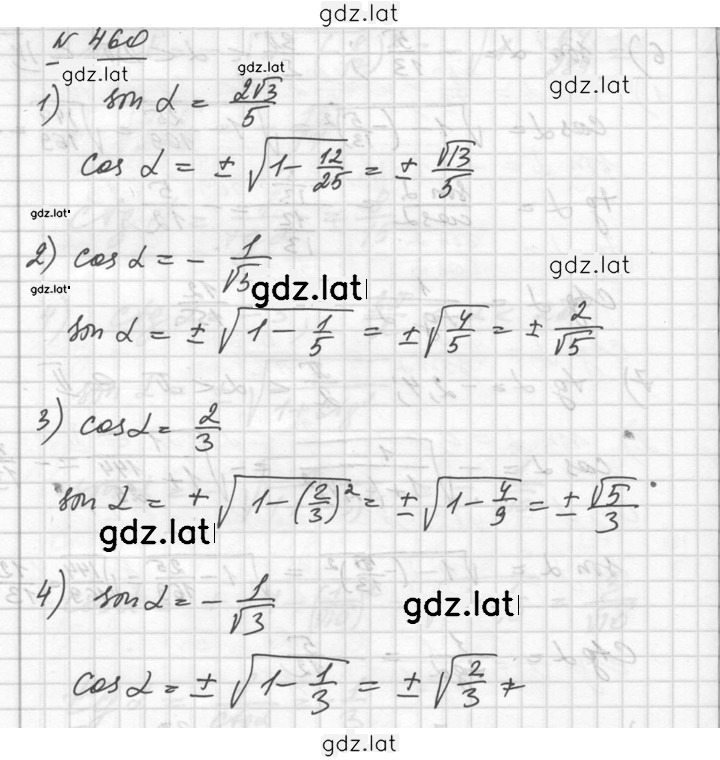 gdz.lat
N 460
gdz.lat gdz.lat gdz.lat
1) sin α = 2√3/5
cos α = ± √(1 - 12/25) = ± √13/5
gdz.lat
2) cos α = - 1/√5
gdz.lat
gdz.lat gdz.lat
sin α = ± √(1 - 1/5) = ± √(4/5) = ± 2/√5
3) cos α = 2/3
sin α = ± √(1 - (2/3)²) = ± √(1 - 4/9) = ± √5/3
gdz.lat
4) sin α = - 1/√3
gdz.lat
cos α = ± √(1 - 1/3) = ± √(2/3)
gdz.lat